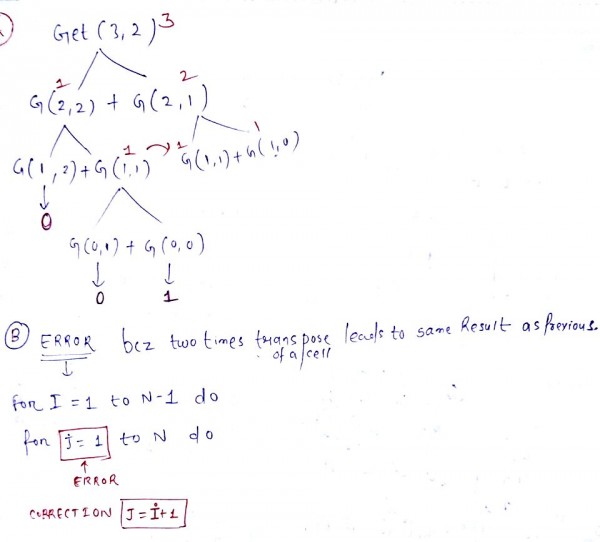 A)
Get (3,2) 3
1 2
G(2,2) + G(2,1)
1 1 1
G(1,2) + G(1,1) G(1,1) + G(1,0)
0
G(0,1) + G(0,0)
0 1
B) ERROR bcz two times transpose of a cell leads to same Result as Previous.
For I = 1 to N-1 do
for j = 1 to N do
ERROR
CORRECTION J = i+1